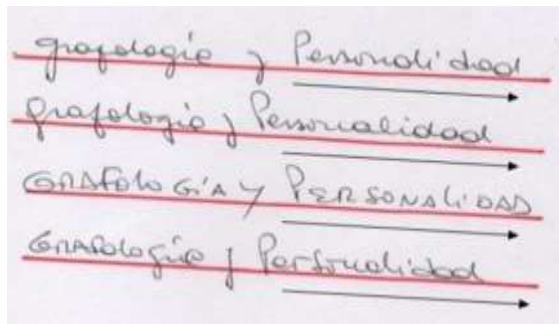 grafologia y Personalidad
grafologia y Personalidad
GRAFOLOGÍA Y PERSONALIDAD
GRAFOlogia y Personalidad